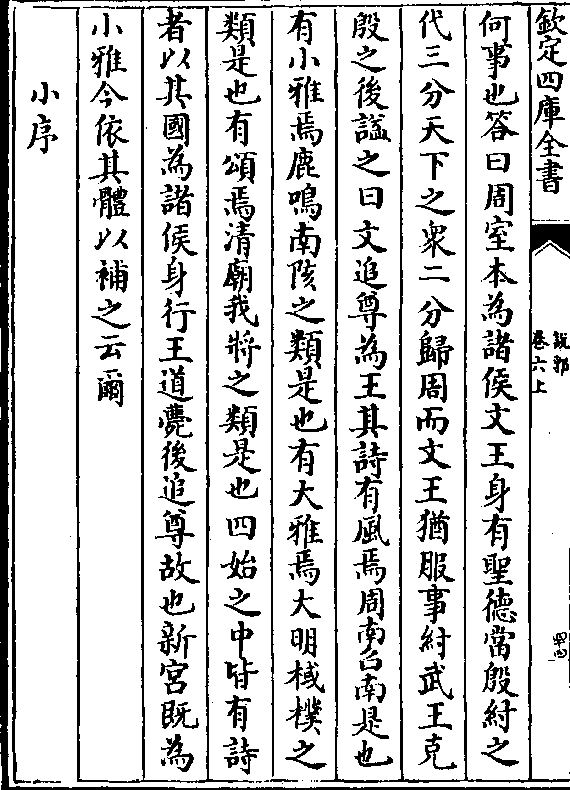 欽定四庫全書
說郛
卷六上
四十四
何事也答曰周室本為諸侯文王身有聖德當殷紂之
代三分天下之衆二分歸周而文王猶服事紂武王克
殷之後諡之曰文追尊為王其詩有風焉周南召南是也
有小雅焉鹿鳴南陔之類是也有大雅焉大明棫樸之
類是也有頌焉清廟我將之類是也四始之中皆有詩
者以其國為諸侯身行王道薨後追尊故也新宮既為
小雅今依其體以補之云爾
小序